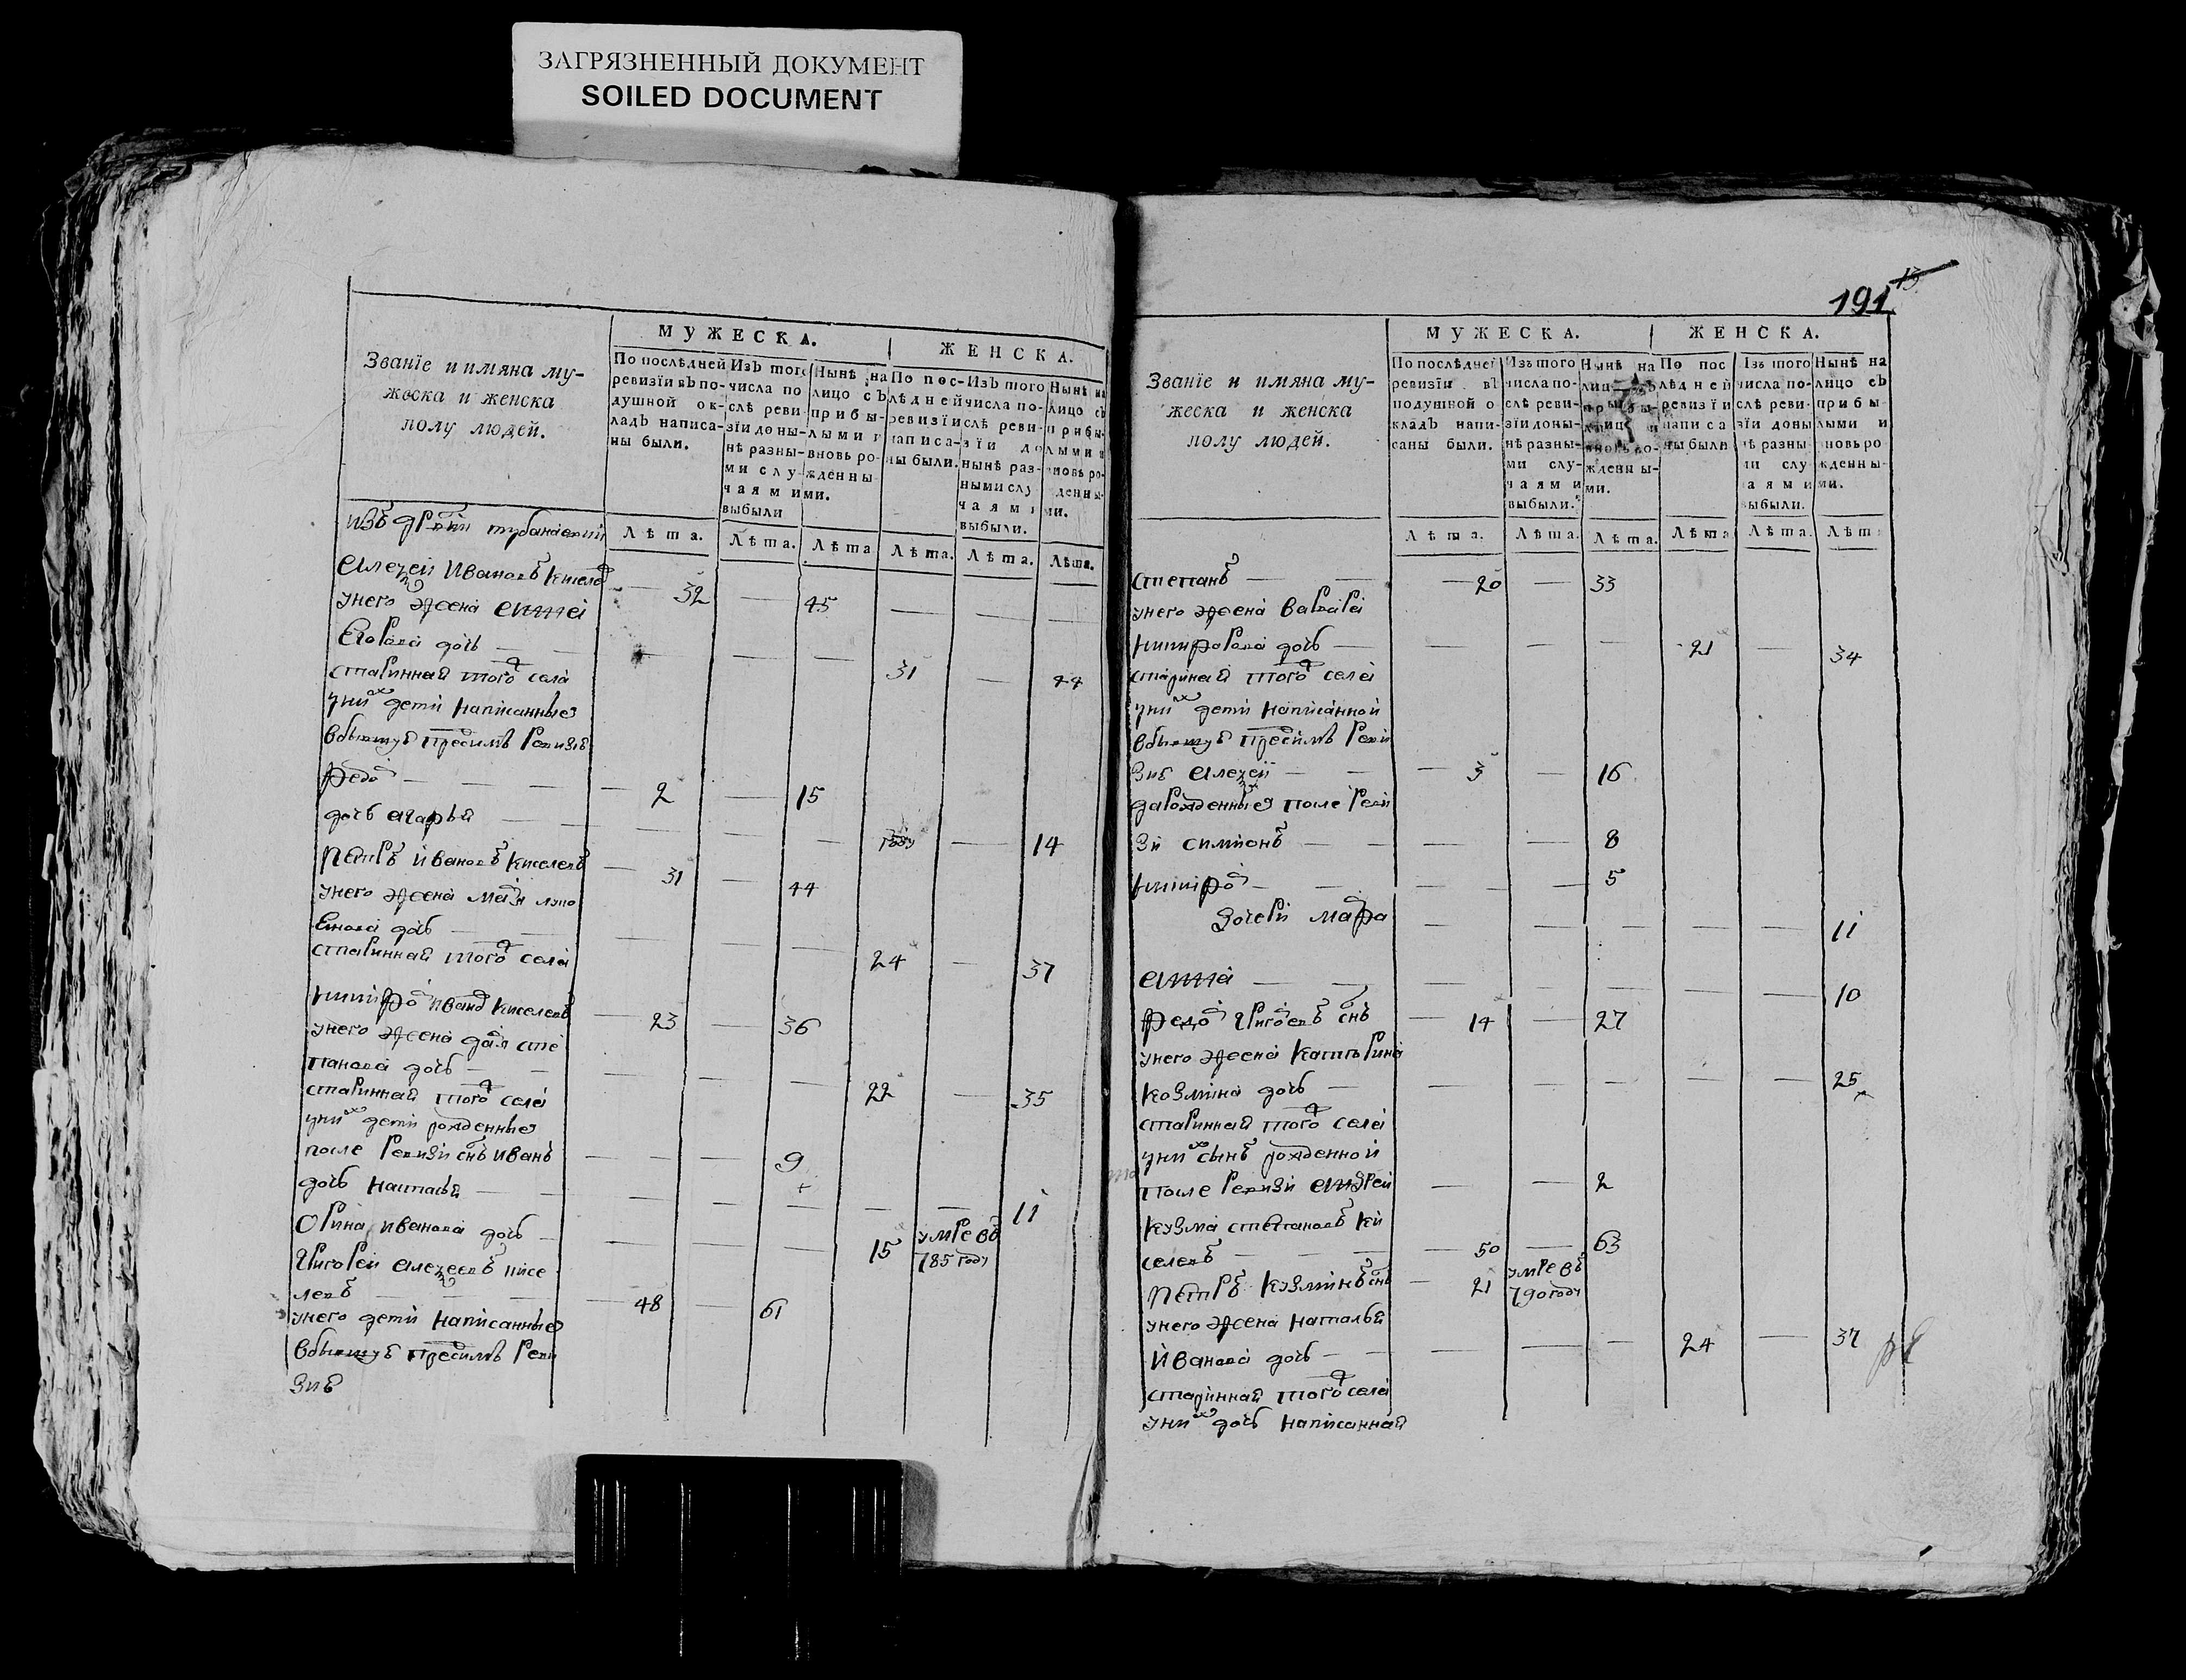 ЗАГРЯЗНЕННЫЙ ДОКУМЕНТ
SOILED DOCUMENT
Званїе и имяна му-
жеска и женска
полу людей.
МУЖЕСКА.
ЖЕНСКА.
По послѣдней
ревизїи въ по-
душной ок-
ладъ написа-
ны были.
Изъ того
числа по
слѣ реви-
зїи до ны-
нѣ разны-
ми слу-
чаями
выбыли
Нынѣ на
лицо съ
прибы-
лыми и
вновь ро-
жденны
ми.
По пос-
лѣдней
ревизїи
написа-
ны были.
Изъ того
числа по-
слѣ реви-
зїи до
нынѣ раз-
ными слу
чаями
выбыли.
Нынѣ на
лицо съ
прибы-
лыми и
вновь ро-
жденны-
ми.
Лѣта. Лѣта. Лѣта Лѣта. Лѣта. Лѣта.
Алеѯей Ивановъ
32 — 45 — — —
у него жена Анна
Егорова дочь — —
— — — 31 — 44
старинная того села
у них дети написанные
прежнею ревизїе
Федор — — — — 2 — 15
дочь Агафья — — — — — — 14
Петръ Ивановъ Киселевъ — 31 — 44
у него жена
дочь — — — — — 24 — 37
старинная того села
Никифор Иванов Киселевъ — 23 — 36
у него жена Даря Сте
панова дочь — — — — — 22 — 35
старинная того села
у них дети рожденные
после ревизи снъ Иванъ — — — 9
дочь Настасья — — — — — — — 11
Орина Иванова дочь — — — — 15 умре въ
785 году
Григорей Алеѯеевъ Кисе
левъ — — — — 48 — 61
у него дети написанные
прежнею реви
зие
191
13
Званїе и имяна му-
жеска и женска
полу людей.
МУЖЕСКА.
ЖЕНСКА.
По послѣдней
ревизїи въ
подушной о
кладъ напи-
саны были.
Изъ того
числа по-
слѣ реви-
зїи до ны-
нѣ разны-
ми слу-
чаями
выбыли.
Нынѣ на
ждены-
ми.
По пос
лѣдней
ревизїи
написа
ны были
Изъ того
числа по-
слѣ реви-
зїи до ны
нѣ разны-
ми слу
чаями
выбыли.
Нынѣ на
лицо съ
прибы
лыми и
вновь ро
жденны-
ми.
Лѣта. Лѣта. Лѣта. Лѣта Лѣта. Лѣта
Степанъ — — — 20 — 33
у него жена Варвара
Никифорова дочь — — — — 21 — 34
старинная того села
у них дети написанной
прежнею реви
зие Алеѯей — — — 3 — 16
да рожденные после реви
зи Симионъ — — — — 8
Никифор — — — — — 5
дочери Марфа — — — — — 11
Анна — — — — — — — 10
Федор Григоревъ снъ — 14 — 27
у него жена Катерина
Козмина дочь — — — — — — 25
старинная того села
у них сынъ рожденной
после ревизи Андрей — — 2
Кузма Степановъ Ки
селевъ — — — 50 — 63
Петръ Кузминъ снъ — 21 умре въ
790 году
у него жена Наталья
Иванова дочь — — — — — 24 — 37
старинная того села
у них дочь написанная